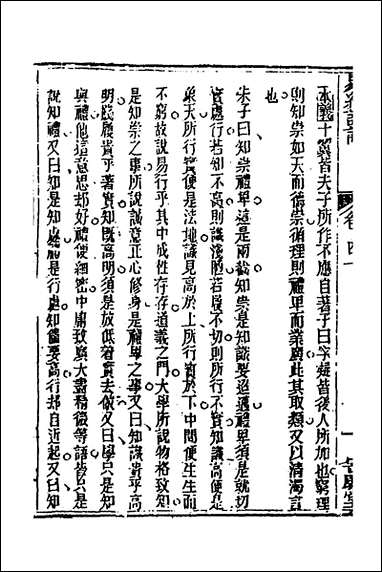 卷四十
一
本義十翼皆夫子所作不應自著子曰字疑皆後人所加也窮理
則知崇如天而德崇循理則禮卑而業廣此其取類又以清濁言
也
朱子曰知崇禮卑這是兩截知崇是知識要超邁禮卑須是就切
實處行若知不高則識淺陋若履不切則所行不實知識高便是
象天所行實便是法地識見高於上所行實於下中間便生生而
不窮故說易行乎其中成性存存道義之門大學所說物格致知
是知崇之事所說誠意正心修身是禮卑之事又曰知識貴乎高
明踐履貴乎著實知既高明須是放低著實去做又曰學只是知
與禮他這意思却好禮便細密中庸致廣大盡精微等語皆只是
說知禮又曰知是知處禮是行處知儘要高行却自近起又曰知